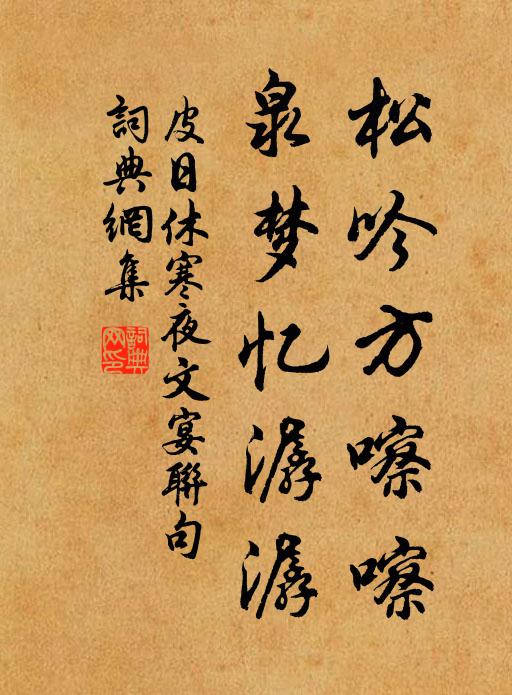 松吟方嚓嚓
泉梦忆潺潺
皮日休寒夜文宴聯句
詞典網集
詞典
网印